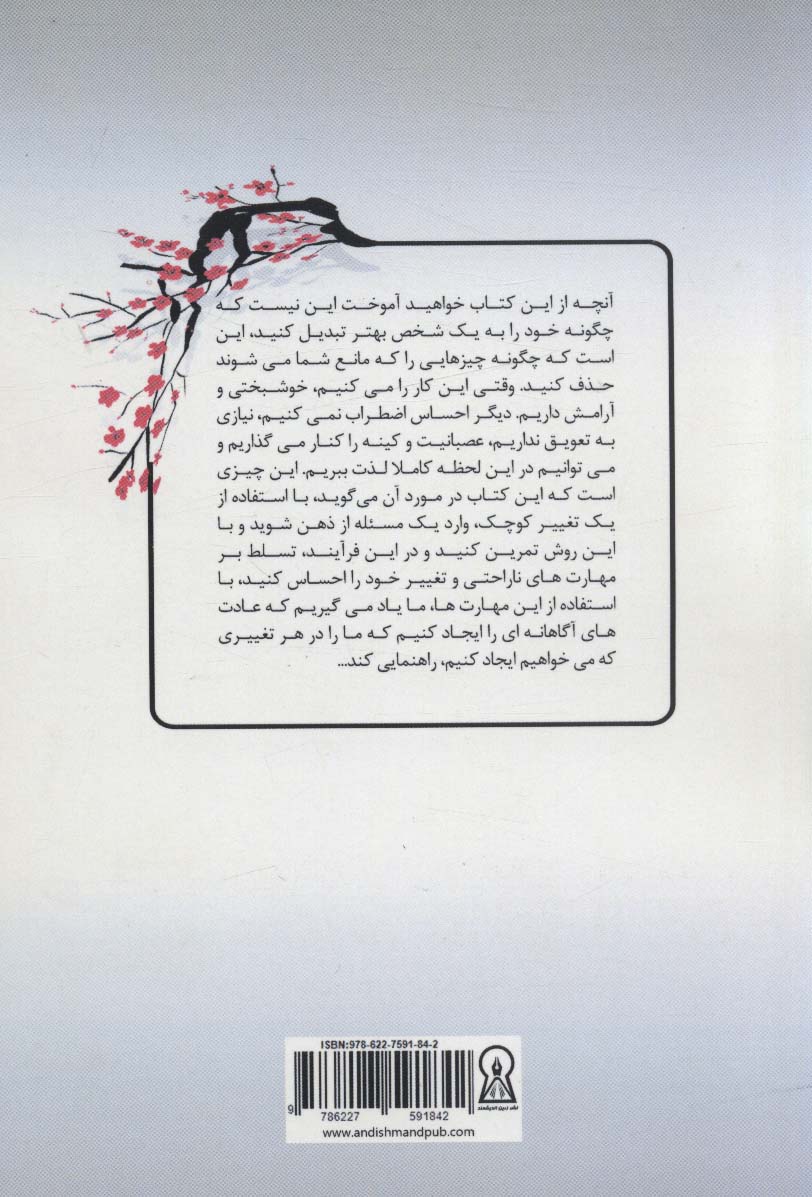 آنچه از این کتاب خواهید آموخت این نیست که
چگونه خود را به یک شخص بهتر تبدیل کنید، این
است که چگونه چیزهایی را که مانع شما می شوند
حذف کنید. وقتی این کار را می کنیم، خوشبختی و
آرامش داریم. دیگر احساس اضطراب نمی کنیم، نیازی
به تعویق نداریم، عصبانیت و کینه را کنار می گذاریم و
می توانیم در این لحظه کاملا لذت ببریم. این چیزی
است که این کتاب در مورد آن می‌گوید، با استفاده از
یک تغییر کوچک، وارد یک مسئله از ذهن شوید و با
این روش تمرین کنید و در این فرآیند، تسلط بر
مهارت های ناراحتی و تغییر خود را احساس کنید، با
استفاده از این مهارت ها، ما یاد می گیریم که عادت
های آگاهانه ای را ایجاد کنیم که ما را در هر تغییری
که می خواهیم ایجاد کنیم، راهنمایی کند...
ISBN:978-622-7591-84-2
9 786227 591842
نشر زرین اندیشمند
www.andishmandpub.com